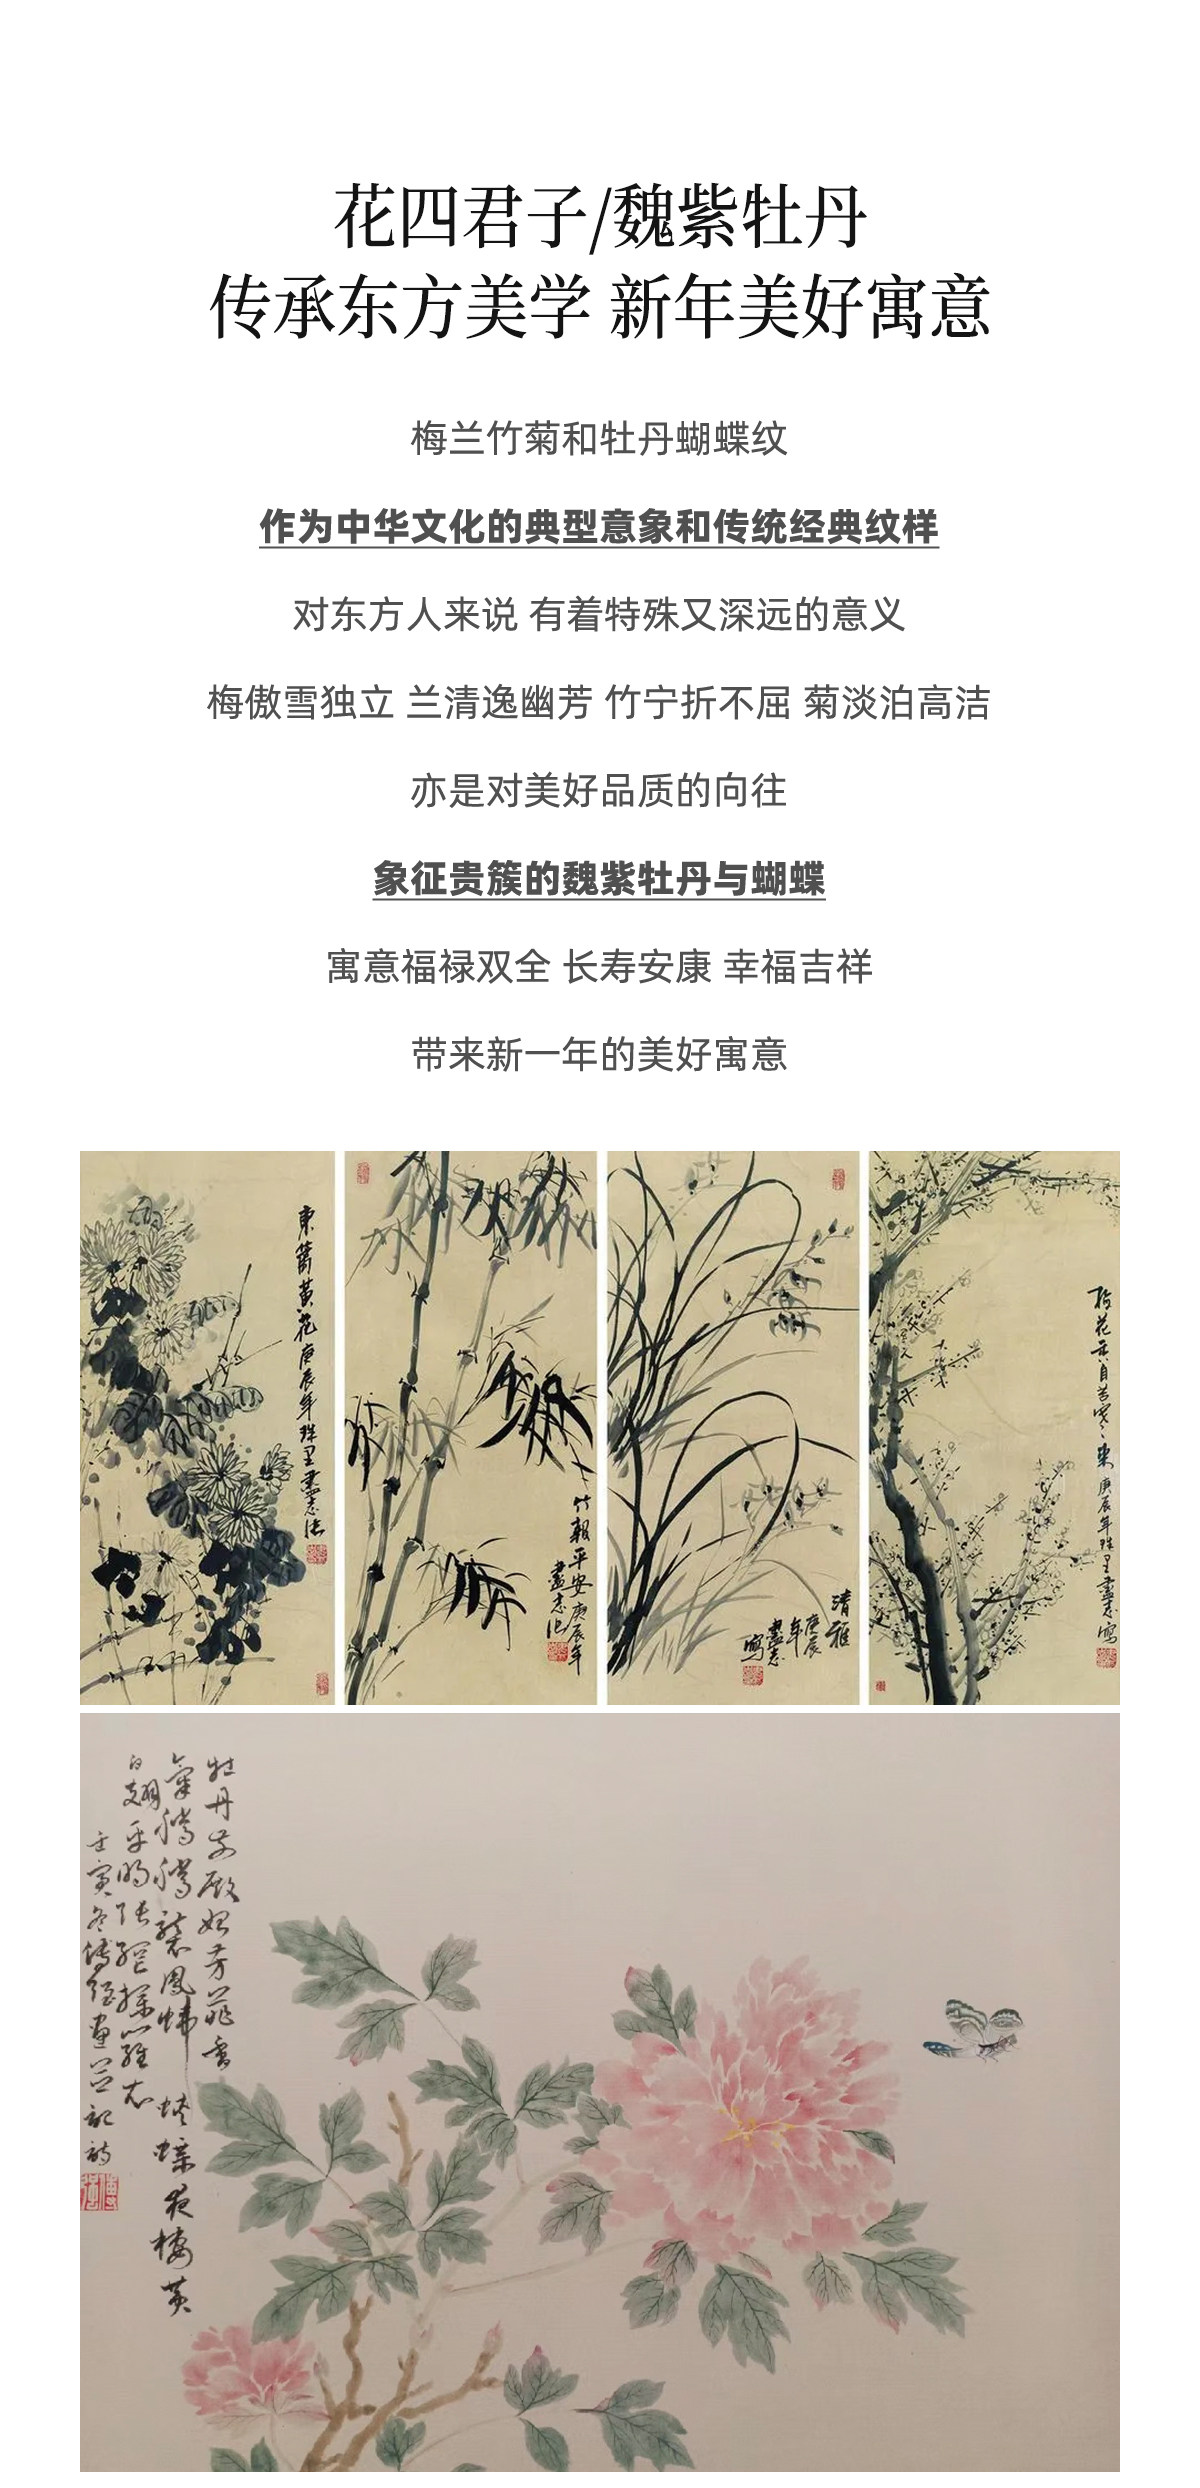 花四君子/魏紫牡丹
传承东方美学 新年美好寓意
梅兰竹菊和牡丹蝴蝶纹
作为中华文化的典型意象和传统经典纹样
对东方人来说 有着特殊又深远的意义
梅傲雪独立 兰清逸幽芳 竹宁折不屈 菊淡泊高洁
亦是对美好品质的向往
象征贵簇的魏紫牡丹与蝴蝶
寓意福禄双全 长寿安康 幸福吉祥
带来新一年的美好寓意
東籬黃花庚辰年珠里
竹報平安庚辰年
清雅
庚辰
年
花香自苦寒
庚辰年珠里
牡丹
殿
芳菲香
氣騰騰襲鳳幃
蝶夜棲黃
壬寅冬